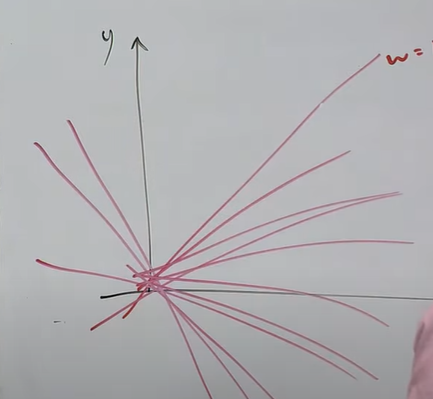 y
w =